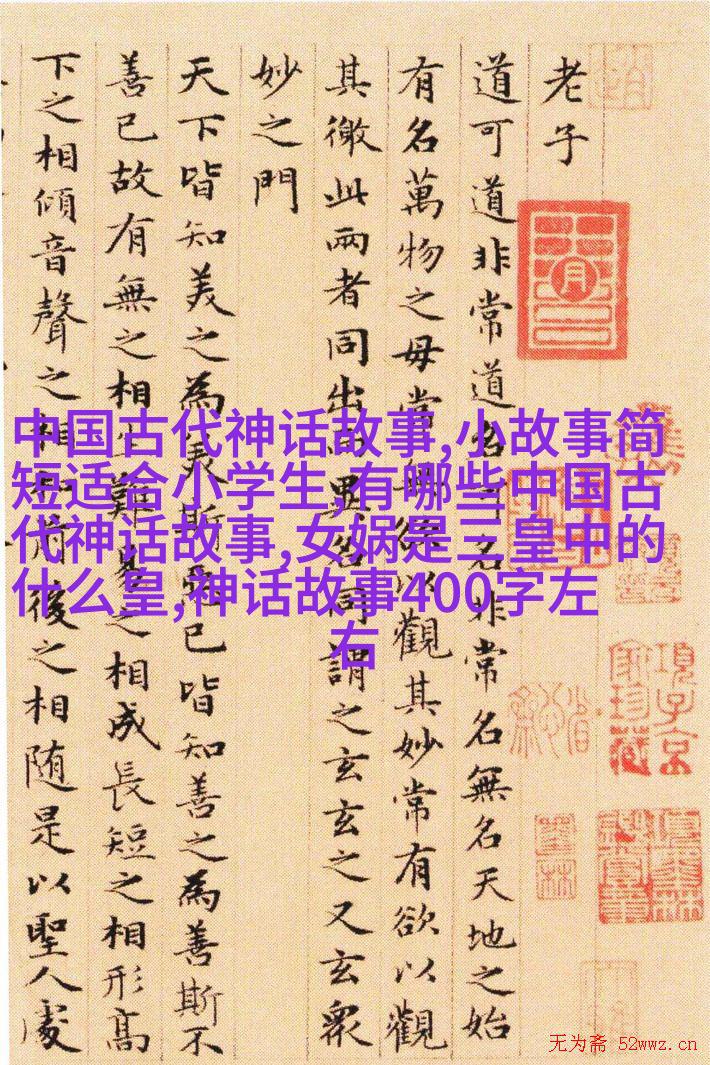 老子
道可道非常道名可名非常名無名天地之始
有名萬物之母常無欲以觀其妙常有欲以觀
其徼此兩者同出而異名同謂之玄玄之又玄衆
妙之門
天下皆知美之為美斯惡已皆知善之為善斯不
善已故有無之相生難易之相成長短之相形高
下之相傾音聲之相和前後之相随是以聖人處
中国古代神话故事,小故事简
短适合小学生,有哪些中国古
代神话故事,女娲是三皇中的
什么皇,神话故事400字左
右
項子京
家珍藏
无为斋 52wwz.cn